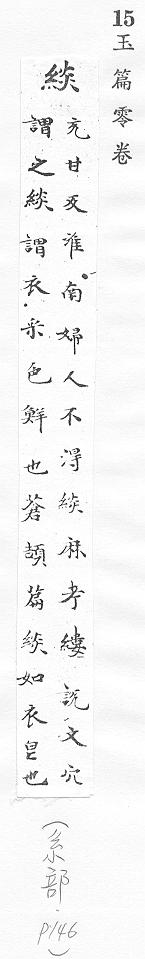 15玉篇零卷
緂
充甘反淮南婦人不淂緂麻考縷説文穴
謂之緂謂衣采色鮮也蒼頡篇緂如衣皇也
(糸部.P146)